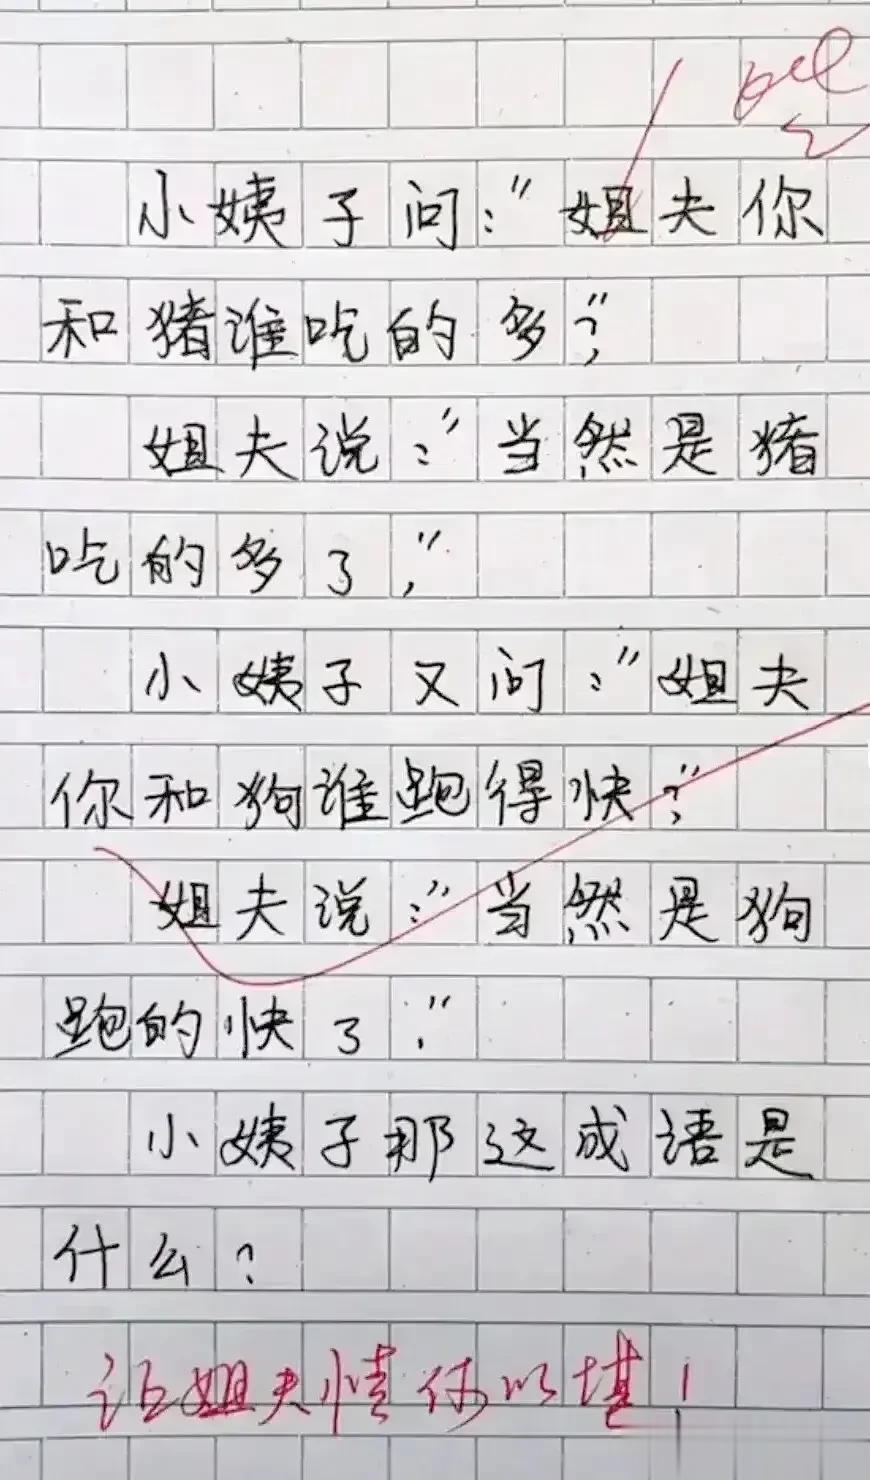 小姨子问:"姐夫你
和猪谁吃的多?"
姐夫说:"当然是猪
吃的多了,"
小姨子又问:"姐夫
你和狗谁跑得快?"
姐夫说:"当然是狗
跑的快了."
小姨子那这成语是
什么?
让姐夫情何以堪!